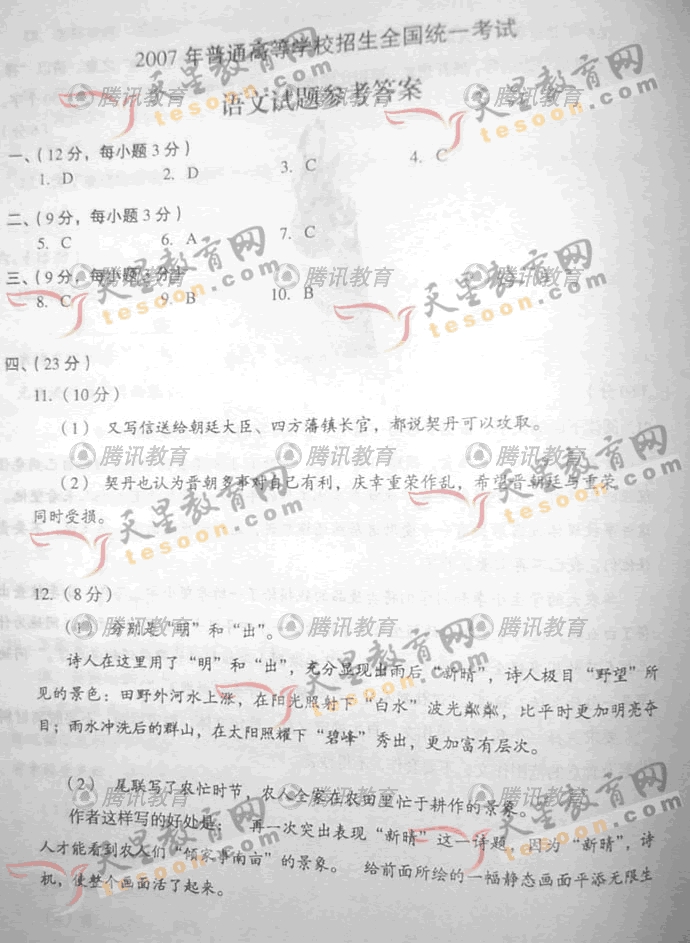 2007年普通高等学校招生全国统一考试
语文试题参考答案
一、(12分，每小题3分)
1. D 2. D 3. C 4. C
二、(9分，每小题3分)
5. C 6. A 7. C
三、(9分，每小题3分)
8. C 9. B 10. B
四、(23分)
11.(10分)
(1) 又写信送给朝廷大臣、四方藩镇长官，都说契丹可以攻取。
(2) 契丹也认为晋朝多事对自己有利，庆幸重荣作乱，希望晋朝廷与重荣
同时受损。
12.(8分)
(1) 分别是“明”和“出”。
诗人在这里用了“明”和“出”，充分显现出雨后“新晴”，诗人极目“野望”所
见的景色：田野外河水上涨，在阳光照射下“白水”波光粼粼，比平时更加明亮夺
目；雨水冲洗后的群山，在太阳照耀下“碧峰”秀出，更加富有层次。
(2) 尾联写了农忙时节，农人全家在农田里忙于耕作的景象。
作者这样写的好处是： 再一次突出表现“新晴”这一诗题，因为“新晴”，诗
人才能看到农人们“倾家事南亩”的景象。 给前面所绘的一幅静态画面平添无限生
机，使整个画面活了起来。
天星教育网
tesoon.com
腾讯教育